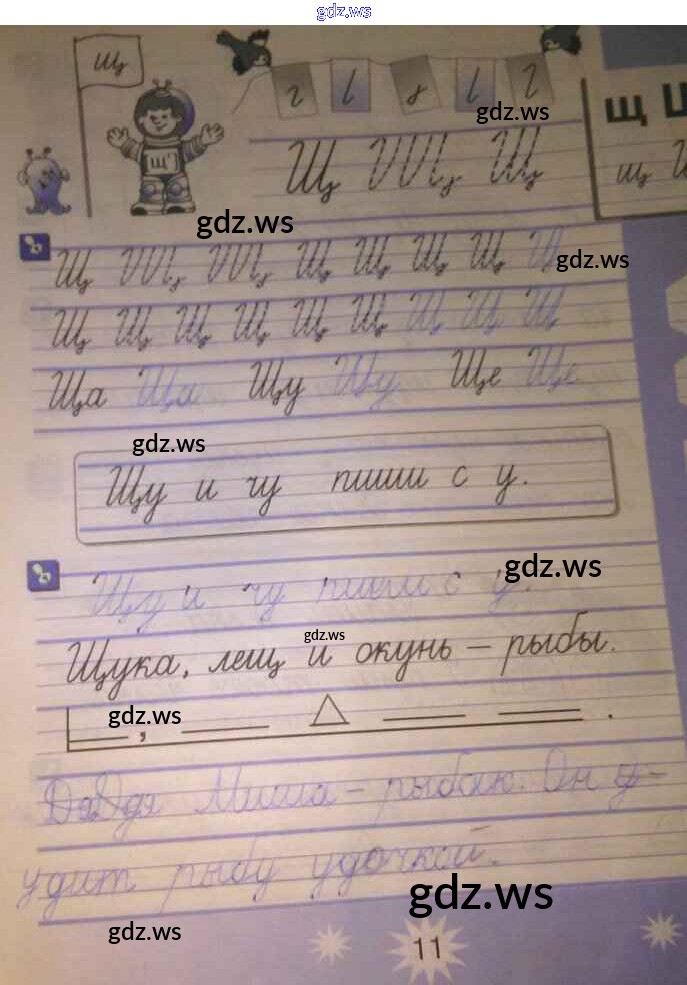 gdz.ws
щ
gdz.ws
Щ Щ
"Щ"
Щ Щ
щ
gdz.ws
Щ Щ Щ Щ Щ Щ
gdz.ws
Щ Щ Щ Щ Щ Щ Щ Щ Щ
Ща Ща Щу Щу Ще Ще
gdz.ws
Щу и чу пиши с у.
gdz.ws
Щу и чу пиши с у.
gdz.ws
Щука, лещ и окунь – рыбы.
gdz.ws
, .
Дядя Миша – рыбак. Он у-
удит рыбу удочкой.
gdz.ws
gdz.ws
11